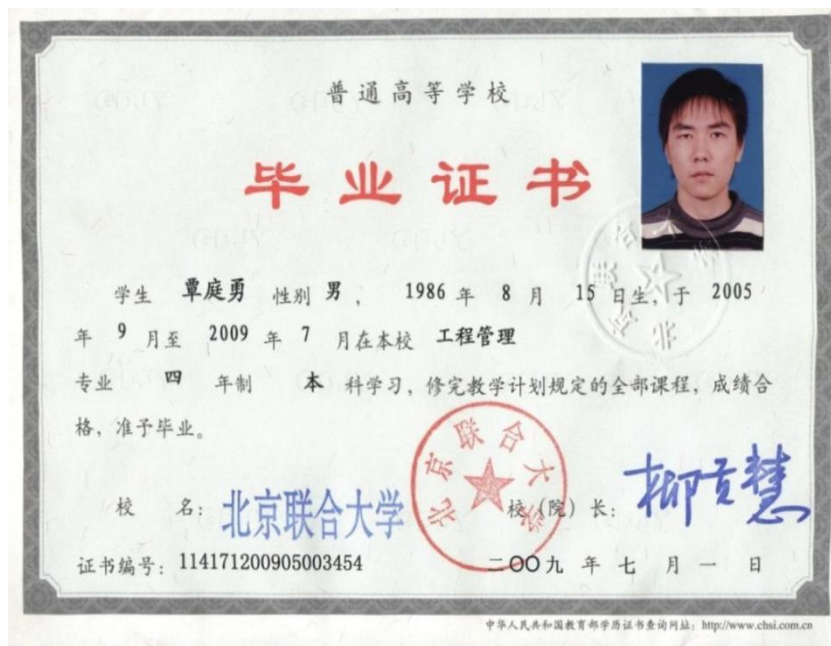 普通高等学校
毕业证书
学生 覃庭勇 性别 男 , 1986 年 8 月 15 日生,于 2005
年 9 月至 2009 年 7 月在本校 工程管理
专业 四 年制 本 科学习,修完教学计划规定的全部课程,成绩合
格,准予毕业。
校 名:北京联合大学 校(院)长:柳贡慧
北京联合大学
证书编号:114171200905003454 二〇〇九 年 七 月 一 日
中华人民共和国教育部学历证书查询网址:http://www.chsi.com.cn